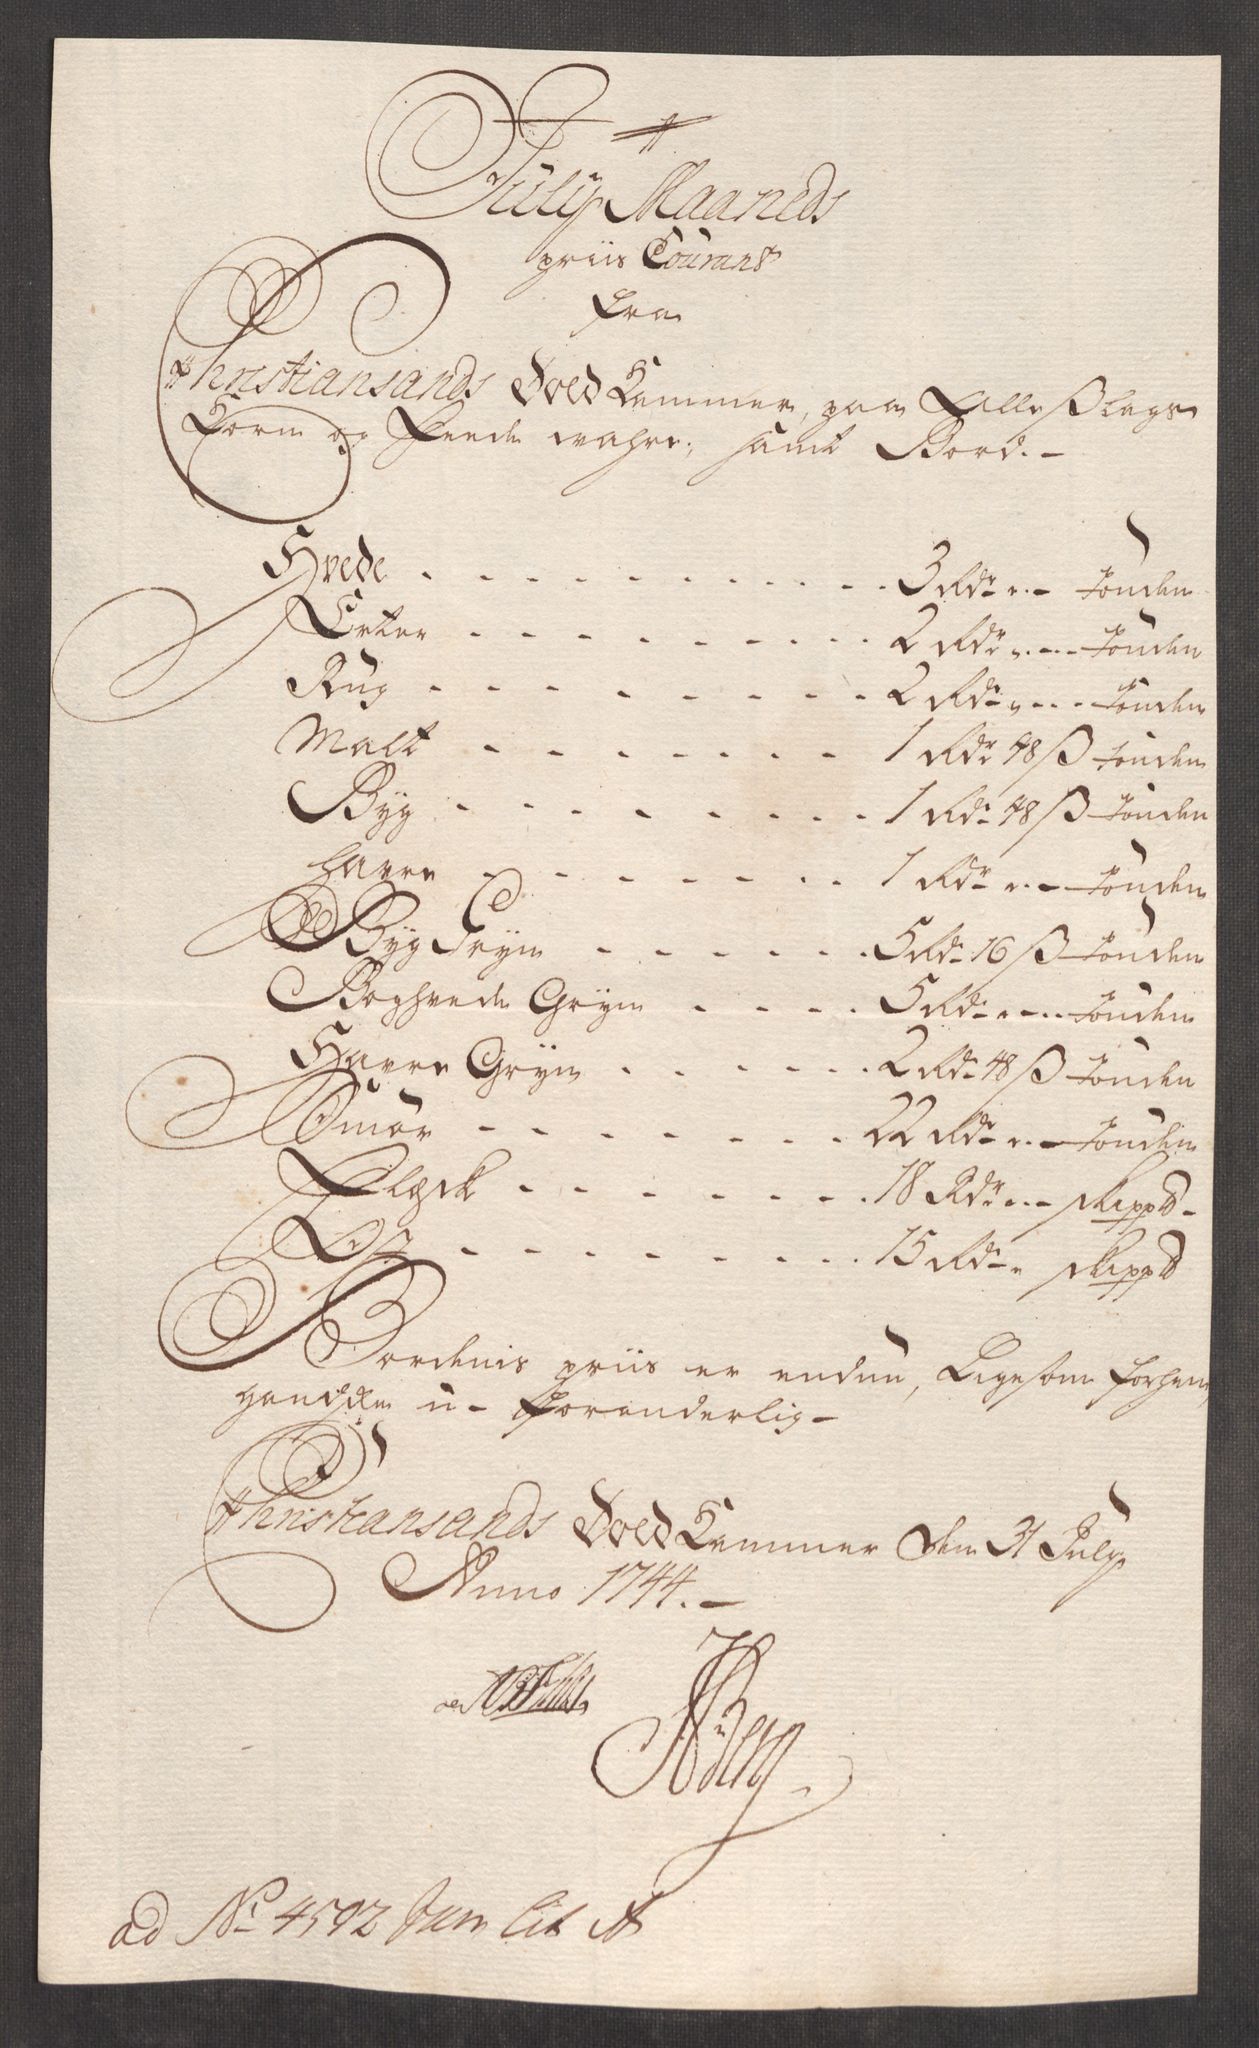 July Maaneds
priis Courant
fra
Christiansands Told Cammer, paa Alle Slags
Korn og Feede wahre, samt Bord.
Hvede 3 Rdr Tønden
Erter 2 Rdr Tønden
Rug 2 Rdr Tønden
Malt 1 Rdr 48 ß Tønden
Byg 1 Rdr 48 ß Tønden
Havre 1 Rdr Tønden
Byg Gryn 5 Rdr 16 ß Tønden
Boghvede Gryn 5 Rdr Tønden
Havre Gryn 2 Rdr 48 ß Tønden
Smør 22 Rdr Tønden
Flesck 18 Rdr Skippd
Ost 15 Rdr Skippd
Bordenis priis er endnu, Ligesom forhen
u-forenderlig
Christiansands Told Cammer Den 31 July
Anno 1744.
Berg
ad No 4592 Lit A